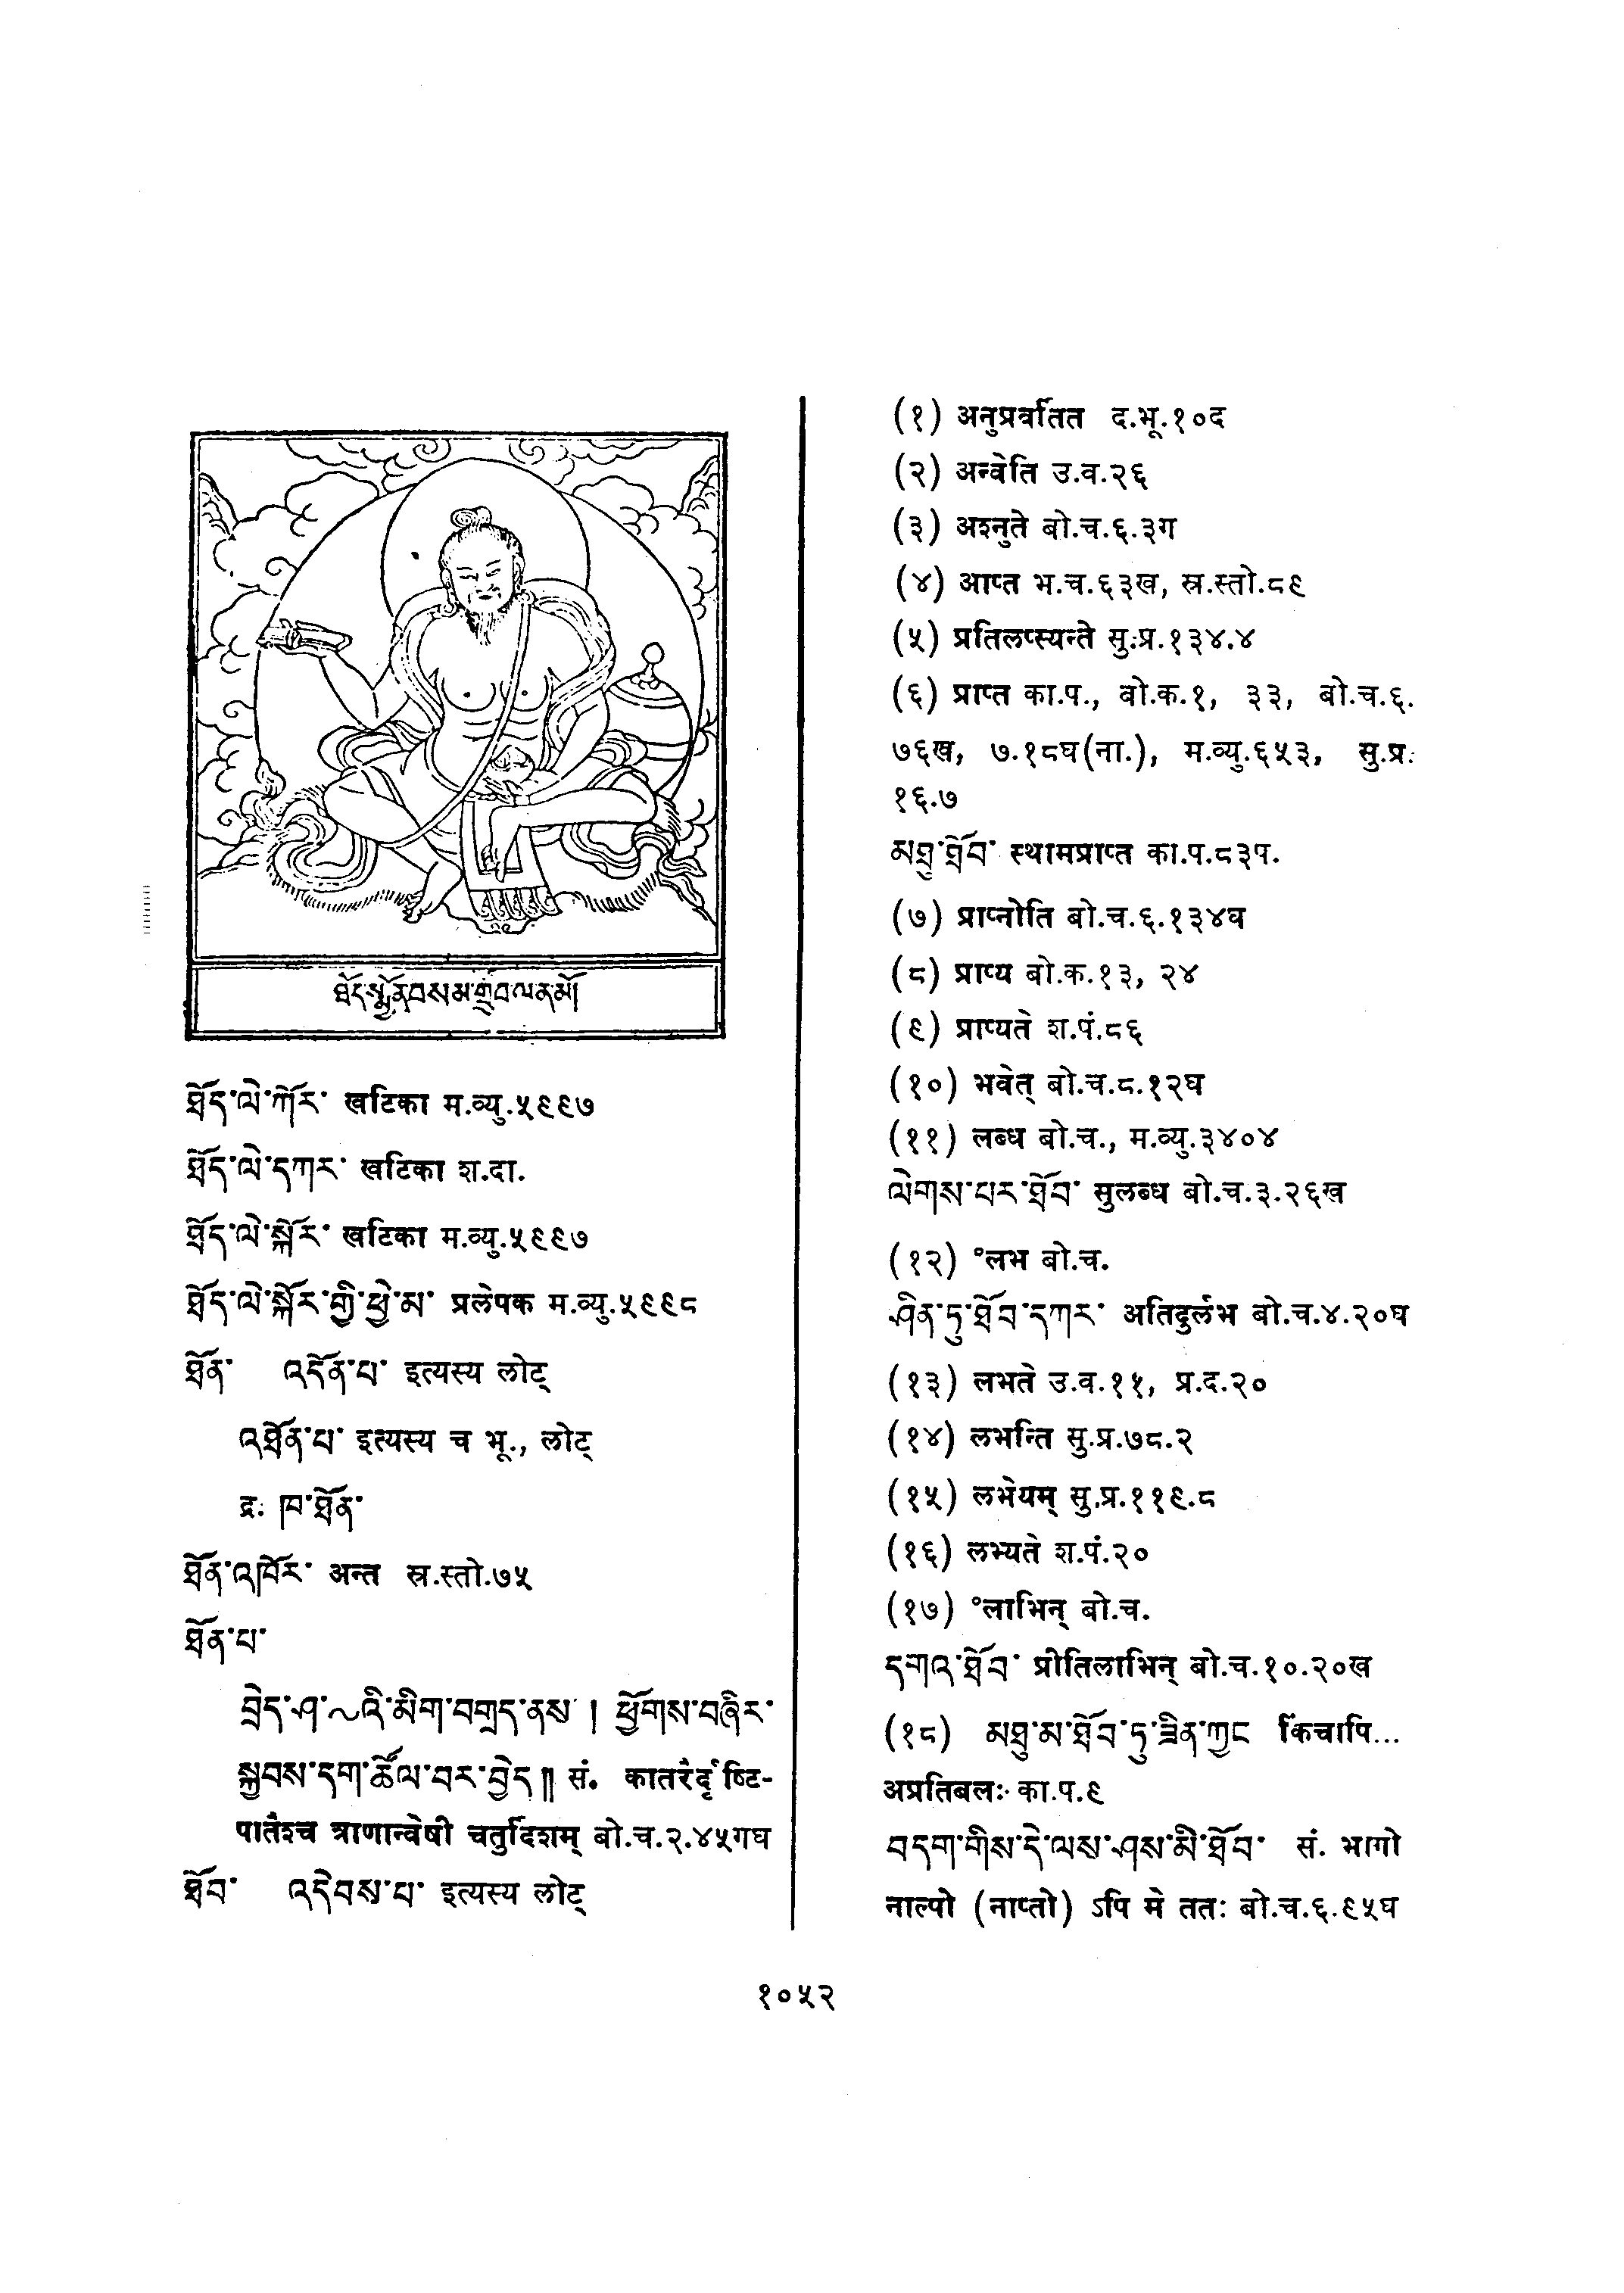 ཐོད་སྨྱོན་བསམ་གྲུབ་ལ་ན་མོ།
ཐོད་ལེ་ཀོར་ खटिका म.व्यु.५९९७
ཐོད་ལེ་དཀར་ खटिका श.दा.
ཐོད་ལེ་སྐོར་ खटिका म.व्यु.५९९७
ཐོད་ལེ་སྐོར་གྱི་ཕྱེ་མ་ प्रलेपक म.व्यु.५९९८
ཐོན་ འདོན་པ་ इत्यस्य लोट्
འཐོན་པ་ इत्यस्य च भू., लोट्
द्र. ཁ་ཐོན་
ཐོན་འཁོར་ अन्त स्र.स्तो.७५
ཐོན་པ་
བྲེད་ཤ་~འི་མིག་བགྲད་ནས། ཕྱོགས་བཞིར་
སྐྱབས་དག་ཚོལ་བར་བྱེད༎ सं. कातरैर्दृष्टि-
पातैश्च त्राणान्वेषी चतुर्दिशम् बो.च.२.४५गघ
ཐོབ་ འདེབས་པ་ इत्यस्य लोट्
(१) अनुप्रवर्तित द.भू.१०द
(२) अन्वेति उ.व.२६
(३) अश्नुते बो.च.६.३ग
(४) आप्त भ.च.६३ख, स्र.स्तो.८९
(५) प्रतिलप्स्यन्ते सु.प्र.१३४.४
(६) प्राप्त का.प., बो.क.१, ३३, बो.च.६.
७६ख, ७.१८घ(ना.), म.व्यु.६५३, सु.प्र.
१६.७
མཐུ་ཐོབ་ स्थामप्राप्त का.प.८३प.
(७) प्राप्नोति बो.च.६.१३४घ
(८) प्राप्य बो.क.१३, २४
(९) प्राप्यते श.पं.८६
(१०) भवेत् बो.च.८.१२घ
(११) लब्ध बो.च., म.व्यु.३४०४
ལེགས་པར་ཐོབ་ सुलब्ध बो.च.३.२६ख
(१२) °लभ बो.च.
ཤིན་ཏུ་ཐོབ་དཀར་ अतिदुर्लभ बो.च.४.२०घ
(१३) लभते उ.व.१५, प्र.द.२०
(१४) लभन्ति सु.प्र.७८.२
(१५) लभेयम् सु.प्र.११९.८
(१६) लभ्यते श.पं.२०
(१७) °लाभिन् बो.च.
དགའ་ཐོབ་ प्रीतिलाभिन् बो.च.१०.२०ख
(१८) མཐུ་མ་ཐོབ་ཏུ་ཟིན་ཀྱང किंचापि...
अप्रतिबलः का.प.९
བདག་གིས་དེ་ལས་ཤས་མི་ཐོབ་ सं. भागो
नाल्पो (नाप्तो) ऽपि मे ततः बो.च.६.९५घ
१०५२